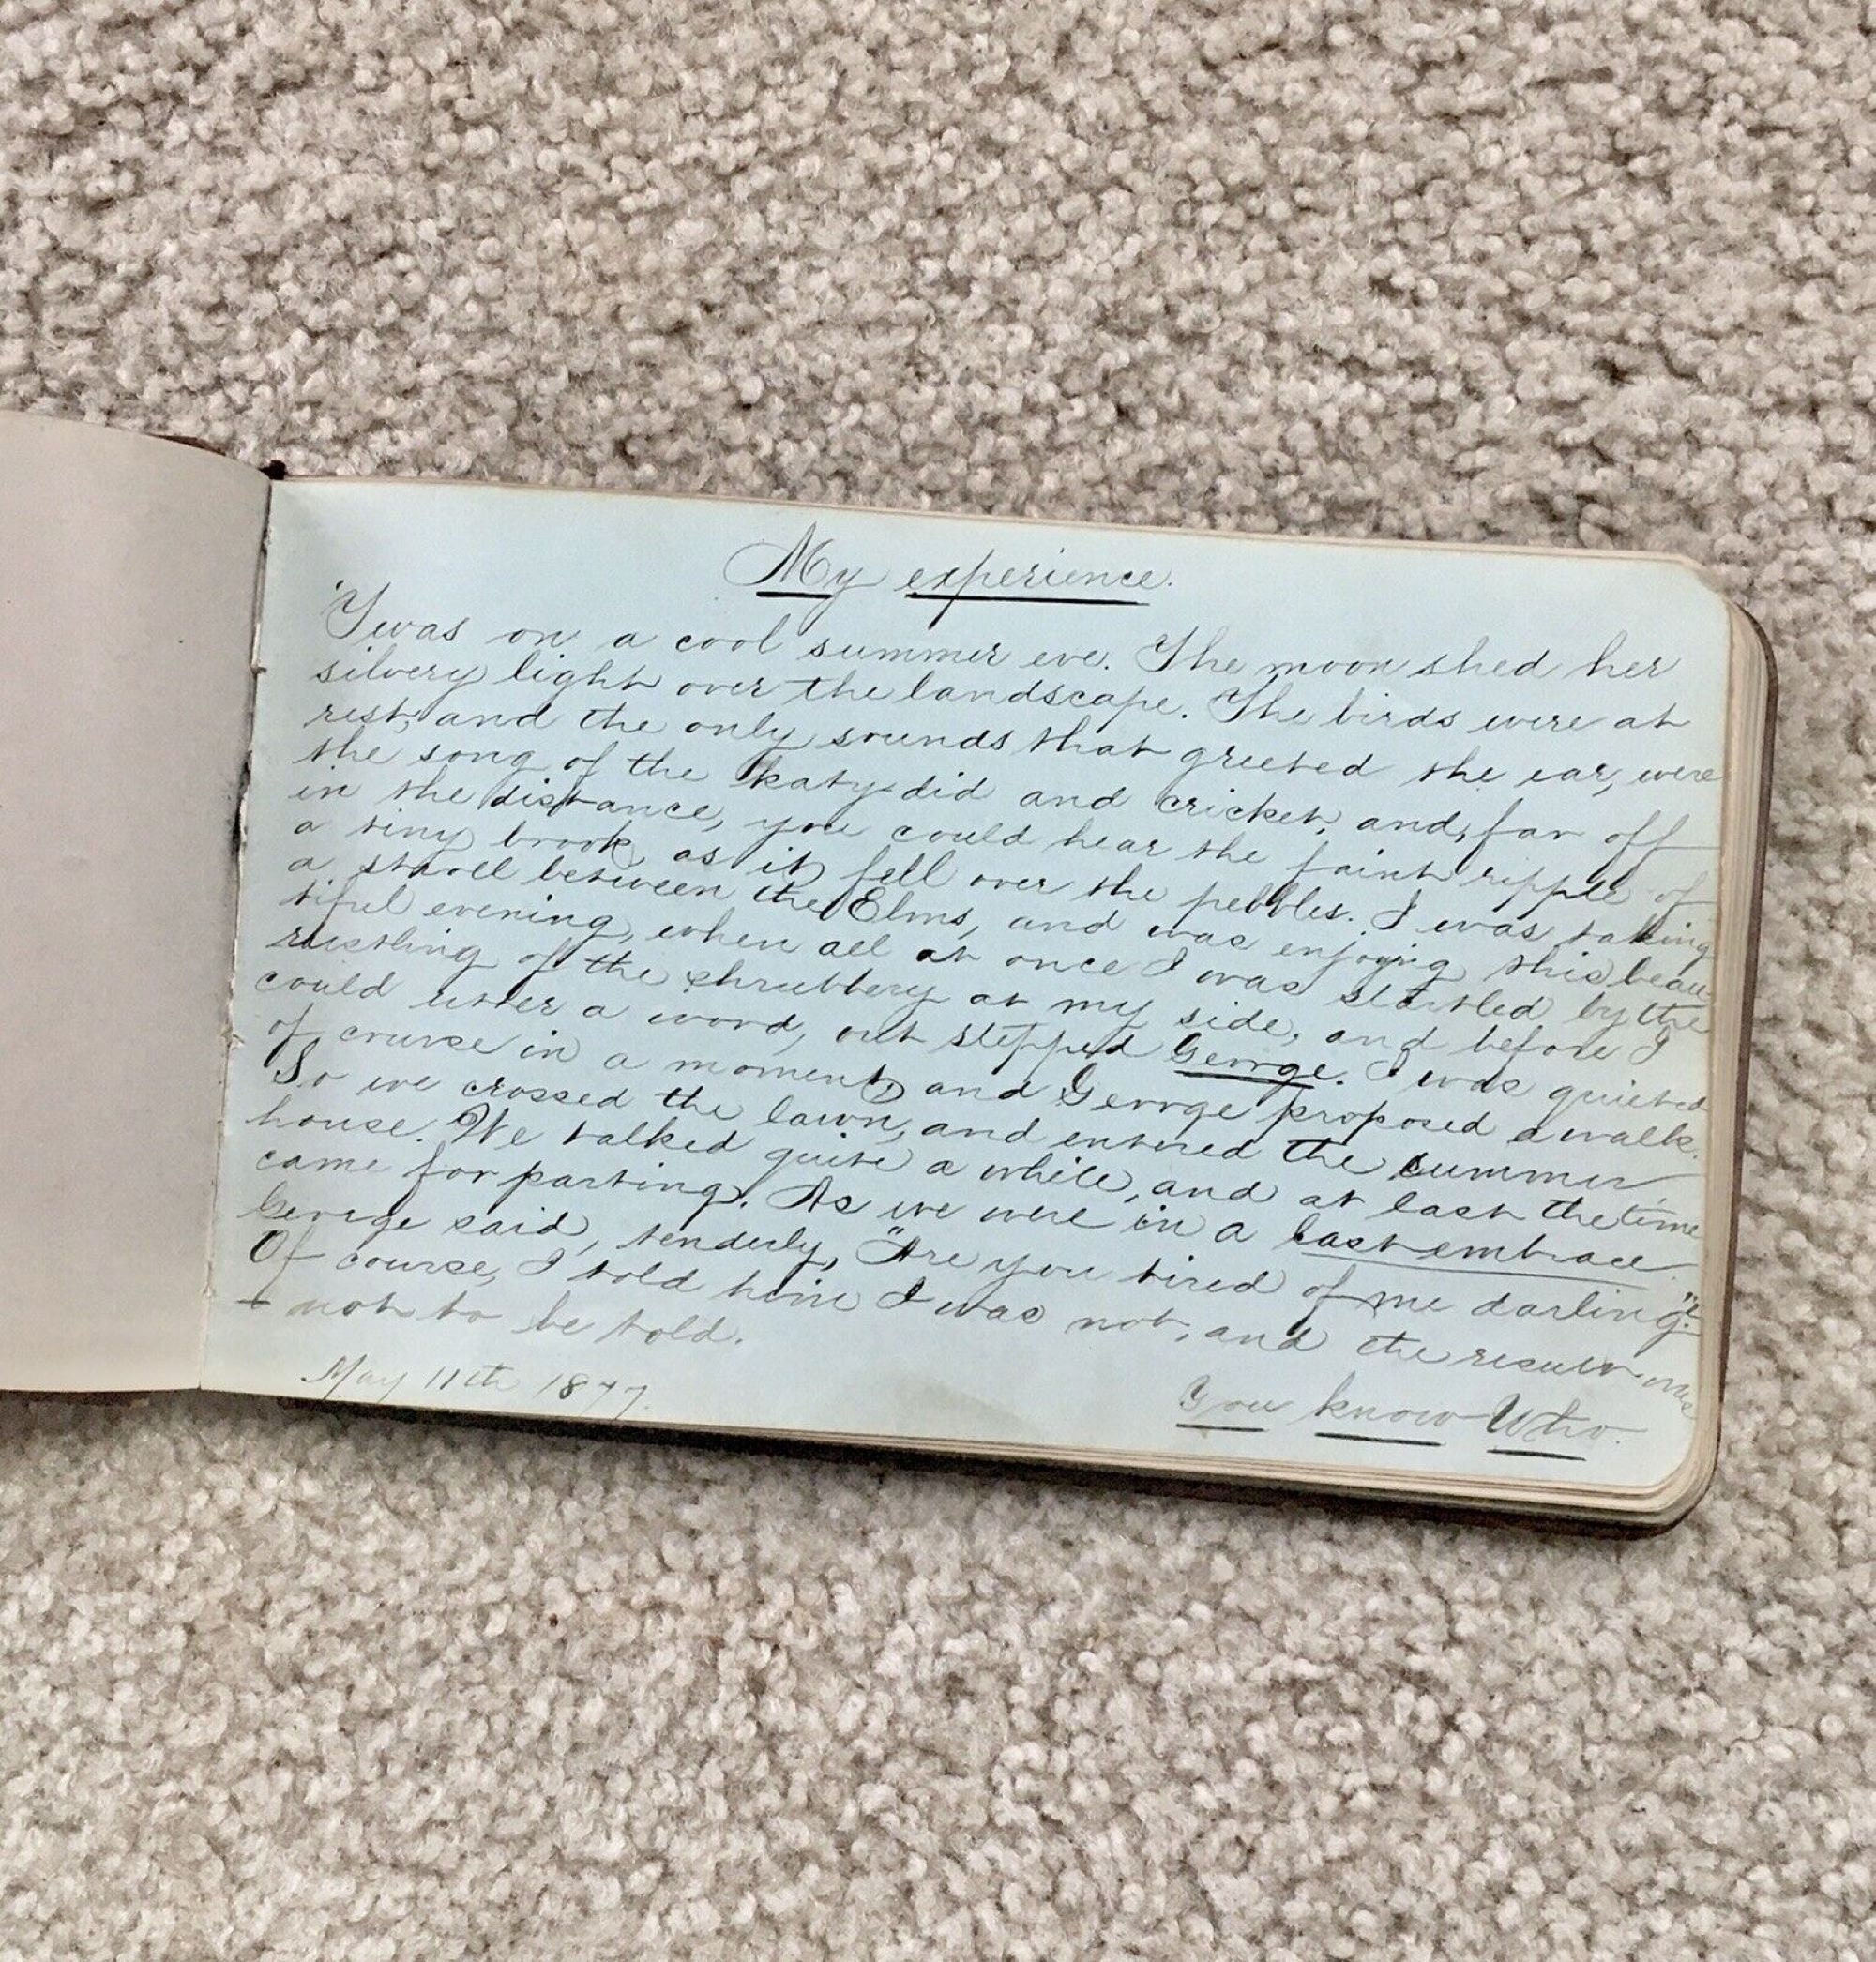 My experience.
'Twas on a cool summer eve. The moon shed her
silvery light over the landscape. The birds were at
rest, and the only sounds that greeted the ear, were
the song of the katy-did and cricket, and, far off
in the distance, you could hear the faint ripple of
a tiny brook, as it fell over the pebbles. I was taking
a stroll between the Elms, and was enjoying this beau-
tiful evening, when all at once I was startled by the
rustling of the shrubbery at my side, and before I
could utter a word, out stepped George. I was quieted
of course in a moment, and George proposed a walk.
So we crossed the lawn, and entered the summer
house. We talked quite a while, and at last the time
came for parting. As we were in a last embrace
George said, tenderly, "Are you tired of me darling"?
Of course, I told him I was not, and the result was
- not to be told.
May 11th 1877.
You know Who.